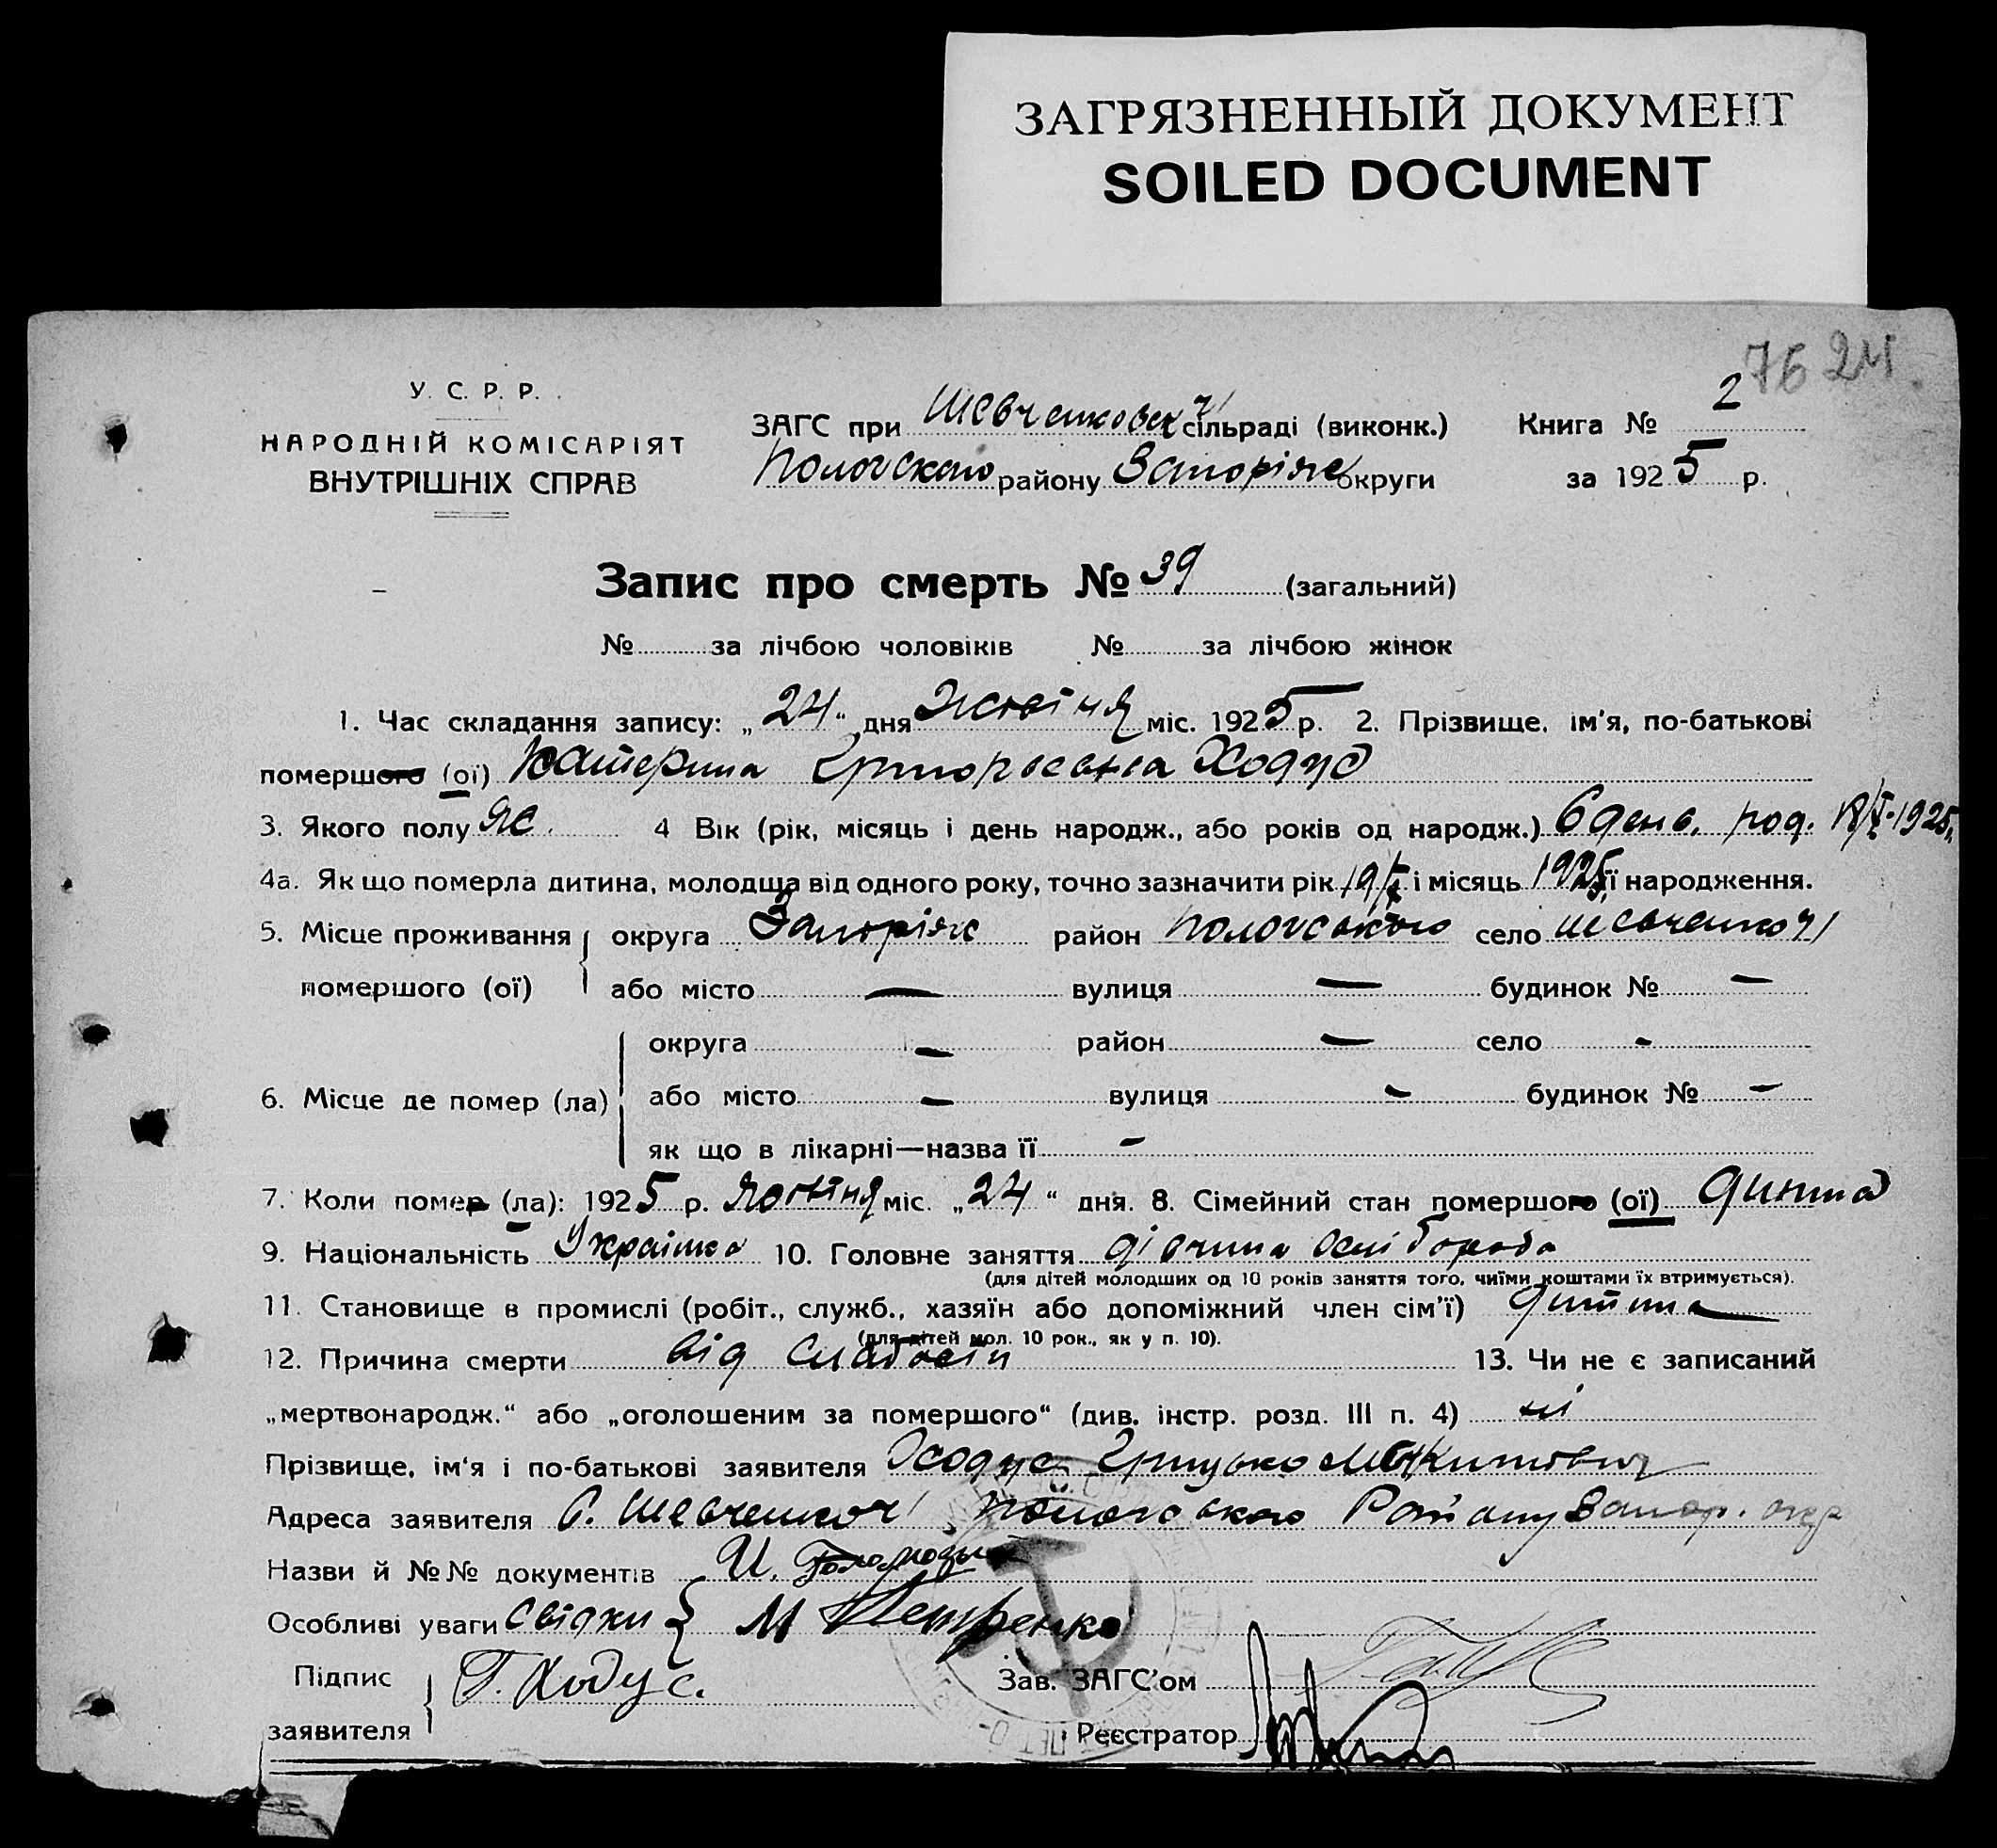 ЗАГРЯЗНЕННЫЙ ДОКУМЕНТ
SOILED DOCUMENT
76 24
У. С. Р. Р.
НАРОДНІЙ КОМІСАРІЯТ
ВНУТРІШНІХ СПРАВ
ЗАГС при Шевченковск сільраді (виконк.) Книга № 2
Пологского району Запоріж округи за 1925 р.
Запис про смерть № 39 (загальний)
№ за лічбою чоловіків № за лічбою жінок
1. Час складання запису: „24“ дня Жовтня міс. 1925 р. 2. Прізвище, ім'я, по-батькові
помершого (ої) Катерина Григоровна Ходус
3. Якого полу ж. 4 Вік (рік, місяць і день народж., або років од народж.) 6 день. род. 19/X-1925.
4а. Як що померла дитина, молодща від одного року, точно зазначити рік 19/X і місяць 1925 її народження.
5. Місце проживання помершого (ої) округа Запоріж район Пологського село Шевченкоч
або місто — вулиця — будинок № —
6. Місце де помер (ла) округа — район — село -
або місто — вулиця - будинок № —
як що в лікарні—назва її -
7. Коли помер (ла): 1925 р. Жовтня міс. „24“ дня. 8. Сімейний стан помершого (ої) дитина
9. Національність Українка 10. Головне заняття дівчина
(для дітей молодших од 10 років заняття того, чиїми коштами їх втримується).
11. Становище в промислі (робіт., служб., хазяїн або допоміжний член сім'ї) дитина
(для дітей мол. 10 рок., як у п. 10).
12. Причина смерти від слабости 13. Чи не є записаний
„мертвонародж.“ або „оголошеним за помершого“ (див. інстр. розд. III п. 4) ні
Прізвище, ім'я і по-батькові заявителя Ходус Грицько Микитович
Адреса заявителя С. Шевченкоч Пологського Району Запор. окр
Назви й №№ документів И.
Особливі уваги Свідки { М Петренко
Підпис заявителя Г. Ходус.
Зав. ЗАГС'ом
Реєстратор